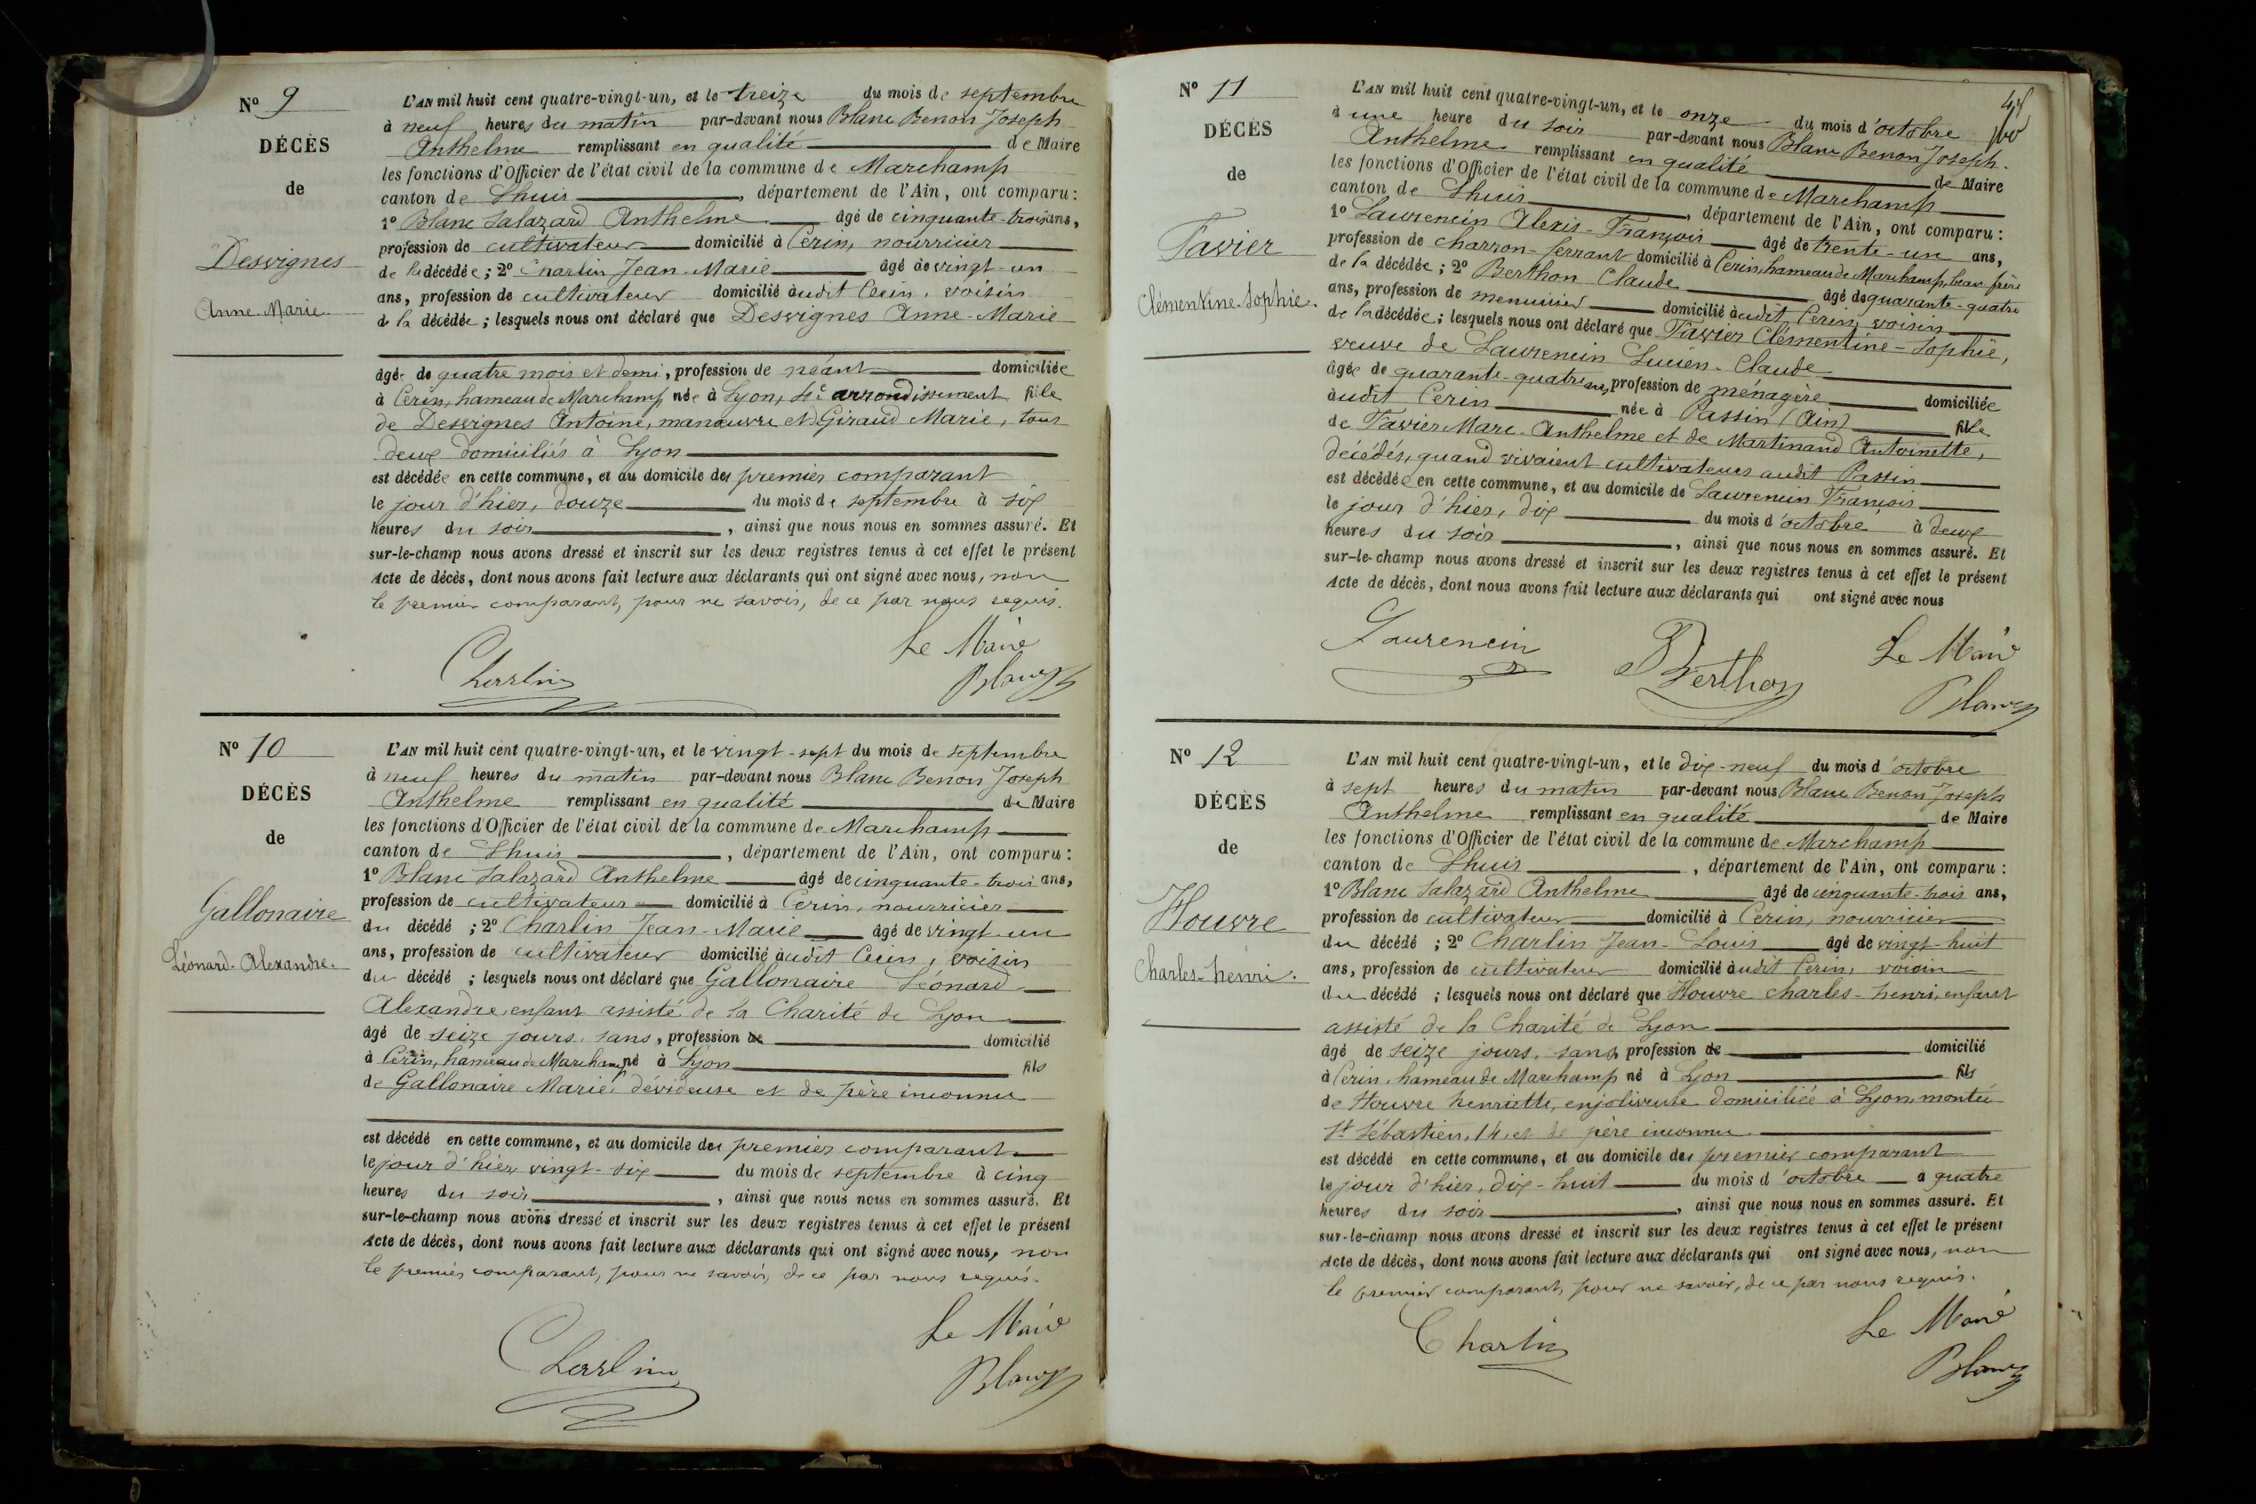 Nº 9
DÉCÈS
de
Desvignes
Anne-Marie
L'AN mil huit cent quatre-vingt-un, et le treize du mois de septembre
à neuf heures du matin par-devant nous Blanc Benon Joseph
Anthelme remplissant en qualité de Maire
les fonctions d'Officier de l'état civil de la commune de Marchamp
canton de Lhuis, département de l'Ain, ont comparu :
1º Blanc Salazard Anthelme âgé de cinquante-trois ans,
profession de cultivateur domicilié à Cerin, nourricier
de la décédée ; 2º Charlin Jean-Marie âgé de vingt-un
ans, profession de cultivateur domicilié audit Cerin, voisin
de la décédée ; lesquels nous ont déclaré que Desvignes Anne-Marie
âgée de quatre mois et demi, profession de néant domiciliée
à Cerin, hameau de Marchamp née à Lyon, 4e arrondissement fille
de Desvignes Antoine, manœuvre et Giraud Marie, tous
deux domiciliés à Lyon
est décédée en cette commune, et au domicile du premier comparant
le jour d'hier, douze du mois de septembre à six
heures du soir, ainsi que nous nous en sommes assuré. Et
sur-le-champ nous avons dressé et inscrit sur les deux registres tenus à cet effet le présent
Acte de décès, dont nous avons fait lecture aux déclarants qui ont signé avec nous, non
le premier comparant, pour ne savoir, de ce par nous requis.
Le Maire
Charlin Blanc
Nº 10
DÉCÈS
de
Gallonaire
Léonard-Alexandre.
L'AN mil huit cent quatre-vingt-un, et le vingt-sept du mois de septembre
à neuf heures du matin par-devant nous Blanc Benon Joseph
Anthelme remplissant en qualité de Maire
les fonctions d'Officier de l'état civil de la commune de Marchamp
canton de Lhuis, département de l'Ain, ont comparu :
1º Blanc Salazard Anthelme âgé de cinquante-trois ans,
profession de cultivateur domicilié à Cerin, nourricier
du décédé ; 2º Charlin Jean-Marie âgé de vingt-un
ans, profession de cultivateur domicilié audit Cerin, voisin
du décédé ; lesquels nous ont déclaré que Gallonaire Léonard
Alexandre, enfant assisté de la Charité de Lyon
âgé de seize jours, sans, profession de domicilié
à Cerin, hameau de Marchamp né à Lyon fils
de Gallonaire Marie, dévideuse et de père inconnu
est décédé en cette commune, et au domicile du premier comparant
le jour d'hier vingt-six du mois de septembre à cinq
heures du soir, ainsi que nous nous en sommes assuré. Et
sur-le-champ nous avons dressé et inscrit sur les deux registres tenus à cet effet le présent
Acte de décès, dont nous avons fait lecture aux déclarants qui ont signé avec nous, non
le premier comparant, pour ne savoir, de ce par nous requis.
Le Maire
Charlin Blanc
Nº 11
DÉCÈS
de
Tavier
Clémentine-Sophie.
L'AN mil huit cent quatre-vingt-un, et le onze du mois d'octobre
à une heure du soir par-devant nous Blanc Benon Joseph
Anthelme remplissant en qualité de Maire
les fonctions d'Officier de l'état civil de la commune de Marchamp
canton de Lhuis, département de l'Ain, ont comparu :
1º Laurencin Alexis-François âgé de trente-un ans,
profession de charron-ferrant domicilié à Cerin, hameau de Marchamp, beau-frère
de la décédée ; 2º Berthon Claude âgé de quarante-quatre
ans, profession de menuisier domicilié audit Cerin, voisin
de la décédée ; lesquels nous ont déclaré que Tavier Clémentine-Sophie,
veuve de Laurencin Lucien-Claude
âgée de quarante-quatre ans, profession de ménagère domiciliée
audit Cerin née à Passin (Ain) fille
de Tavier Marc-Anthelme et de Martinand Antoinette,
décédés, quand vivaient cultivateurs audit Passin
est décédée en cette commune, et au domicile de Laurencin François
le jour d'hier, dix du mois d'octobre à deux
heures du soir, ainsi que nous nous en sommes assuré. Et
sur-le-champ nous avons dressé et inscrit sur les deux registres tenus à cet effet le présent
Acte de décès, dont nous avons fait lecture aux déclarants qui ont signé avec nous
Laurencin Berthon Le Maire
Blanc
Nº 12
DÉCÈS
de
Houvre
Charles-henri.
L'AN mil huit cent quatre-vingt-un, et le dix-neuf du mois d'octobre
à sept heures du matin par-devant nous Blanc Benon Joseph
Anthelme remplissant en qualité de Maire
les fonctions d'Officier de l'état civil de la commune de Marchamp
canton de Lhuis, département de l'Ain, ont comparu :
1º Blanc Salazard Anthelme âgé de cinquante-trois ans,
profession de cultivateur domicilié à Cerin, nourricier
du décédé ; 2º Charlin Jean-Louis âgé de vingt-huit
ans, profession de cultivateur domicilié audit Cerin, voisin
du décédé ; lesquels nous ont déclaré que Houvre charles-henri, enfant
assisté de la Charité de Lyon
âgé de seize jours, sans, profession de domicilié
à Cerin, hameau de Marchamp né à Lyon fils
de Houvre henriette, enjoliveuse domiciliée à Lyon, montée
St Sébastien, 14, et de père inconnu.
est décédé en cette commune, et au domicile du premier comparant
le jour d'hier, dix-huit du mois d'octobre à quatre
heures du soir, ainsi que nous nous en sommes assuré. Et
sur-le-champ nous avons dressé et inscrit sur les deux registres tenus à cet effet le présent
Acte de décès, dont nous avons fait lecture aux déclarants qui ont signé avec nous, non
le premier comparant, pour ne savoir, de ce par nous requis.
Le Maire
Charlin Blanc